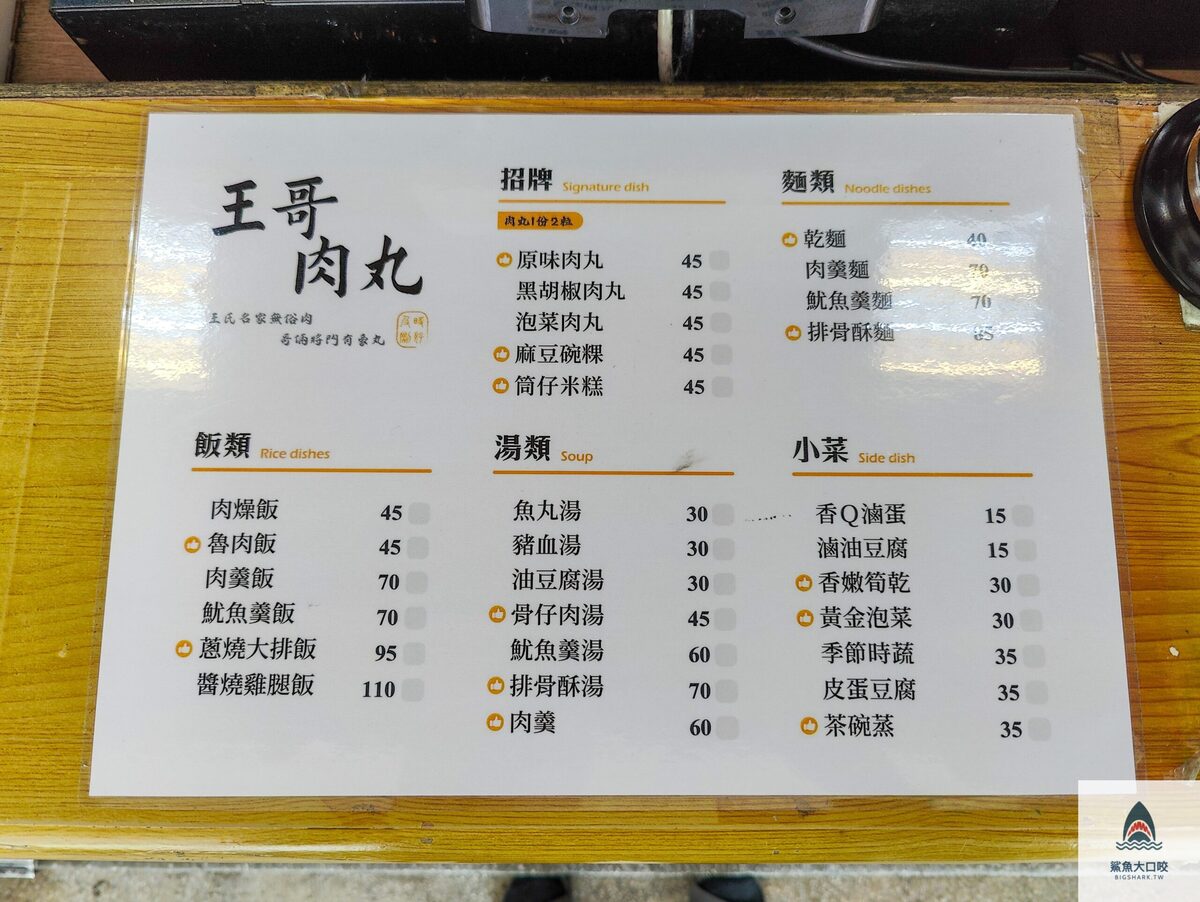 王哥
肉丸
王氏名家無俗肉
哥倆將門有豪丸
招牌 Signature dish
肉丸1份2粒
原味肉丸 45
黑胡椒肉丸 45
泡菜肉丸 45
麻豆碗粿 45
筒仔米糕 45
麵類 Noodle dishes
乾麵 40
肉羹麵 70
魷魚羹麵 70
排骨酥麵
飯類 Rice dishes
肉燥飯 45
魯肉飯 45
肉羹飯 70
魷魚羹飯 70
蔥燒大排飯 95
醬燒雞腿飯 110
湯類 Soup
魚丸湯 30
豬血湯 30
油豆腐湯 30
骨仔肉湯 45
魷魚羹湯 60
排骨酥湯 70
肉羹 60
小菜 Side dish
香Q滷蛋 15
滷油豆腐 15
香嫩筍乾 30
黃金泡菜 30
季節時蔬 35
皮蛋豆腐 35
茶碗蒸 35
鯊魚大口咬
BIGSHARK.TW